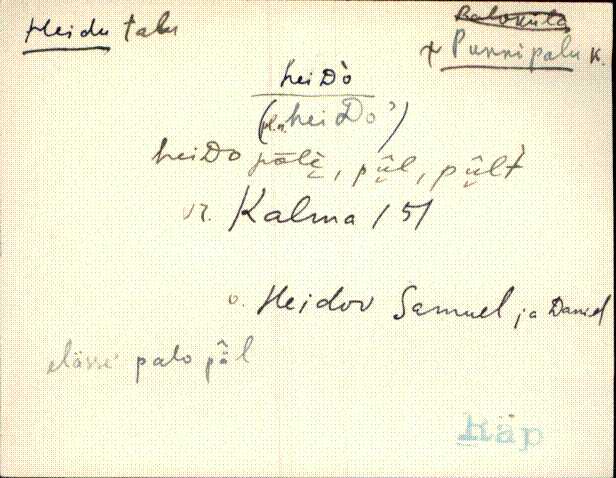 Heidu talu
Paloküla
Punnipalu k.
heiᴅò
(pl.n. heiᴅo')
heiᴅo pōlè, pǖl, pǖlt
vr. Kalma 151
o. Heidov Samuel ja Daniel
elässi palo pǟl
Räp